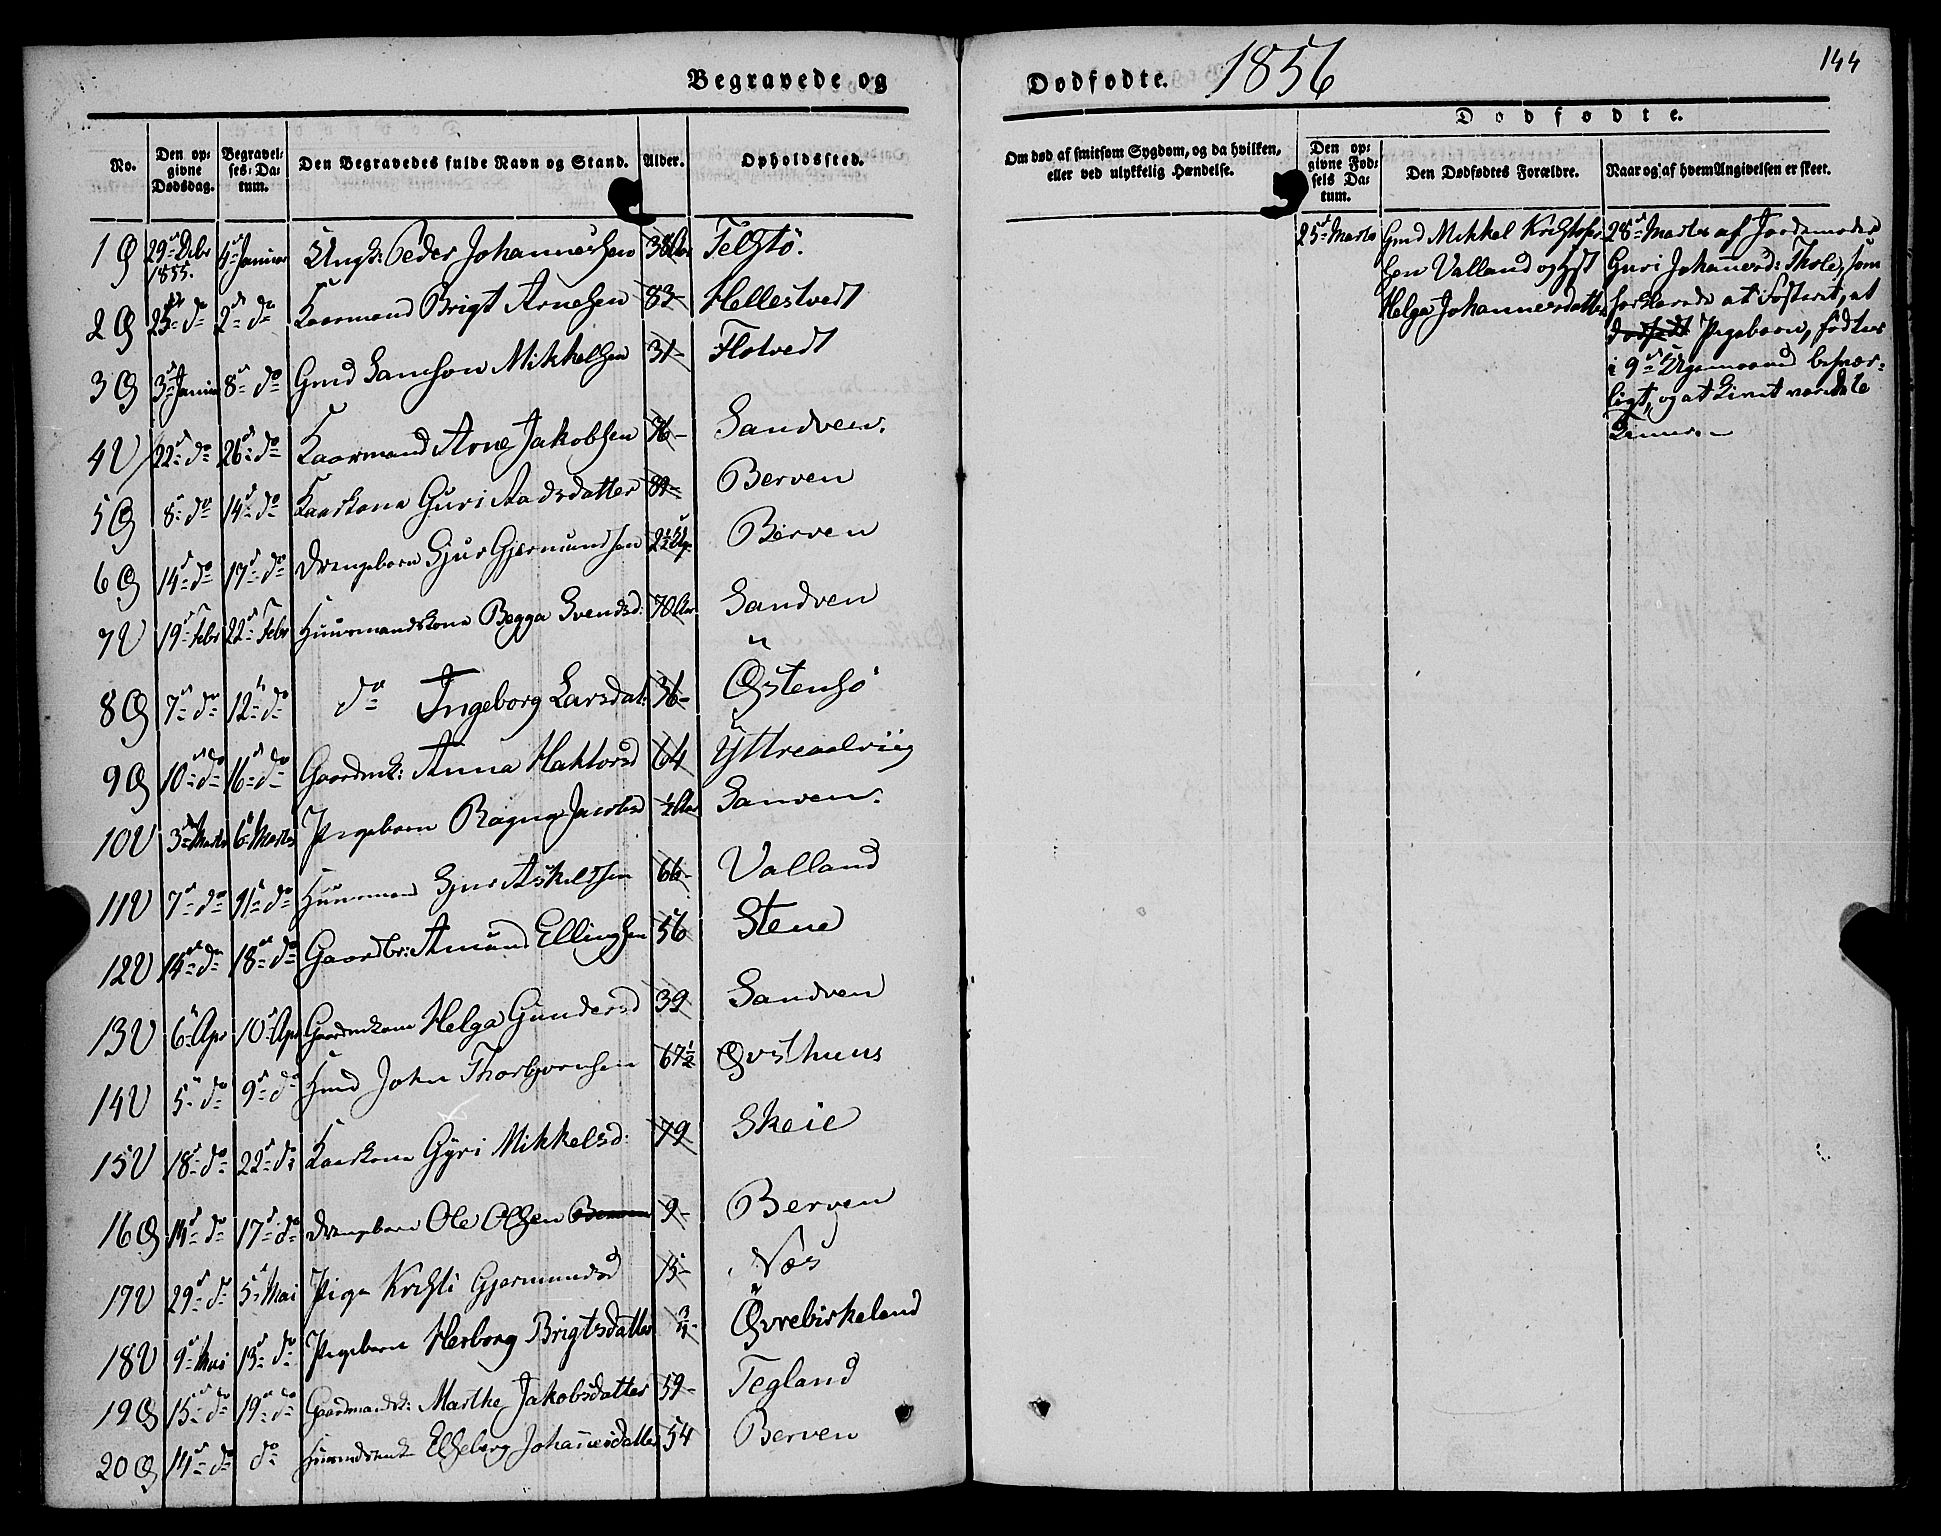 Begravede og
No.
Den opgivne Dødsdag.
Begravelses-Datum.
Den Begravedes fulde Navn og Stand.
Alder.
Opholdssted.
1 Ø 29de Debr 1855. 4de Januar Ungk: Peder Johannessen 38 Aar Telstø.
2 Ø 25de do 2de do Kaarmand Brigt Arnesen 83- Hellestvedt
3 Ø 3de Januar 8de do Gmd Samson Mikkelsen 31- Flotvedt
4 V 22de do 26de do Kaarmand Arne Jakobsen 76- Sandven.
5 Ø 8de do 14de do Kaarkone Guri Aadsdatter 89- Berven
6 Ø 14de do 17de do Drengebarn Sjur Gjermundsen 2½ Berven
7 V 19de Febr 22de Febr Huusmandskone Begga Svendsd: 70 Aar Sandven
8 Ø 7de do 12te do do Ingeborg Larsdat: 36- Østensø
9 Ø 10de do 16de do Gaardmk: Anna Haktorsd 64 Yttreaalviig
10 V 3de Marts 6te Marts Pigebarn Ragna Jacobsd ½ Aar Sanven.
11 V 7de do 11te do Huusmand Sjur Askeldsen 66- Valland
12 V 14de do 18de do Gaardbr: Amund Ellingsen 56 Stene
13 V 6te Apr 10de Apr Gaardmkone Helga Gundersd 39 Sandven
14 V 5te do 9de do Hmd John Thorbjørnsen 67½ Øvsthuus
15 V 18de do 22de do Kaarkone Gyri Mikkelsd: 79 Skeie
16 Ø 14de do 17de do Drengebarn Ole Olsen Berven 9- Berven
17 V 29de do 5te Mai Pige Kristi Gjermundsd 15- Næs
18 V 9de Mai 13de do Pigebarn Herborg Brigtsdatter ¾- Øvrebirkeland
19 Ø 15de do 19de do Gaardmandsk: Marthe Jakobsdatter 59- Tegland
20 Ø 14de do do Elseberg Johannesdatter 54 Berven
Dødfødte. 1856
144
Dødfødte.
Om død af smitsom Sygdom, og da hvilken,
eller ved ulykkelig Hændelse.
Den opgivne Fødsels Datum.
Den Dødfødtes Forældre.
Naar og af hvem Angivelsen er skeet.
25de Marts
Gmd Mikkel Kristofer
sen Valland og Hst
Helga Johannesdatter
28de Marts af Jordemoder
Guri Johannesd: Thole, som
forklarede at Fosteret, et
dødfødt Pigebarn, fødtes
i 9de Svangermaaned besvær-
ligt, og at Livet varede te
Timer.-